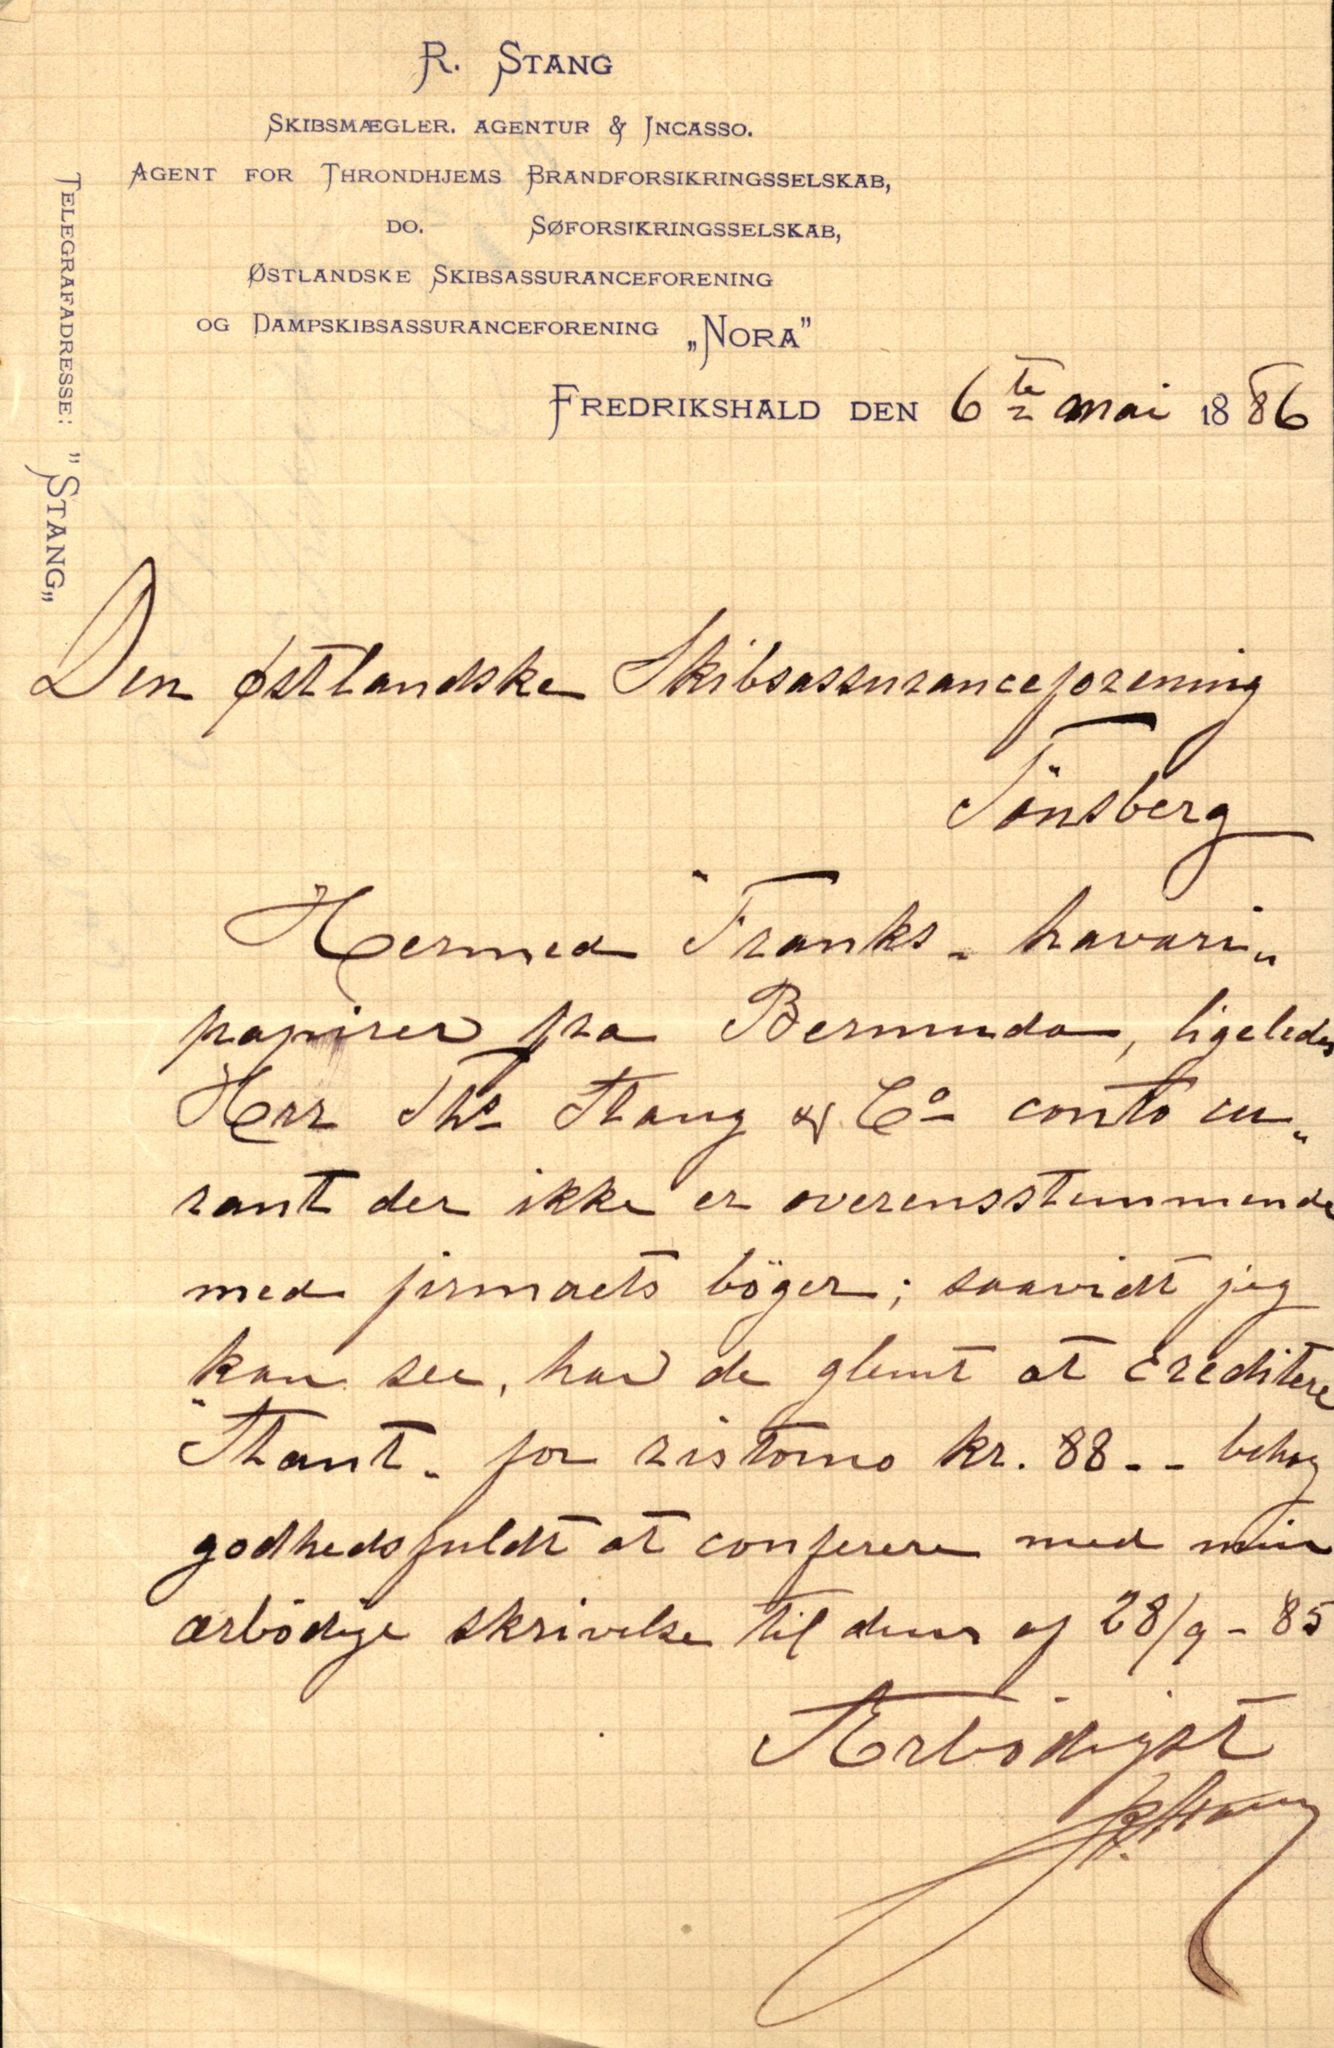 R. Stang
Skibsmægler. Agentur & Incasso.
Agent for Throndhjems Brandforsikringsselskab,
do. Søforsikringsselskab,
Østlandske Skibsassuranceforening
og Dampskibsassuranceforening „Nora”
Telegrafadresse: "Stang„
Fredrikshald den 6te mai 1886
Den østlandske Skibsassuranceforening
Tönsberg
Hermed "Franks„ havari„
papirer fra Bermuda, ligeledes
Herr Ths Stang & Co conto cu„
rant der ikke er overensstemmende
med firmaets böger; saavidt jeg
kan see, har de glemt at creditere
"Stant„ for ristorno kr. 88 -- behag
godhedsfuldt at conferere med min
ærbödige skrivelse til dem af 28/9 - 85
Ærbödigst
R. Stang